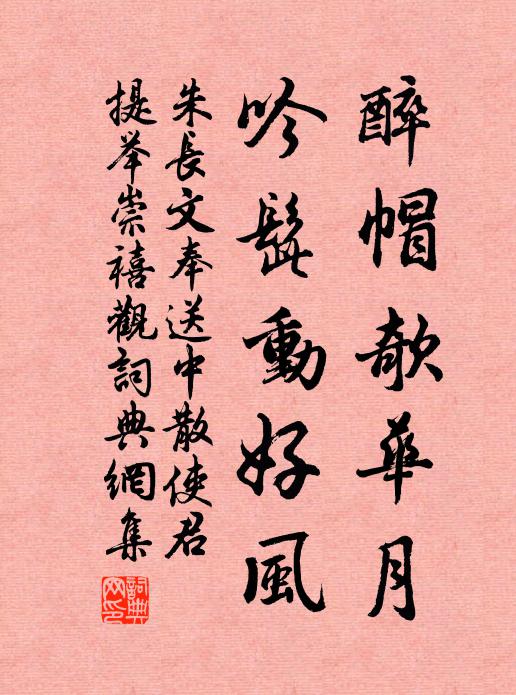 醉帽欹華月
吟髭動好風
朱長文奉送中散使君
提举崇禧觀詞典網集
詞典网印